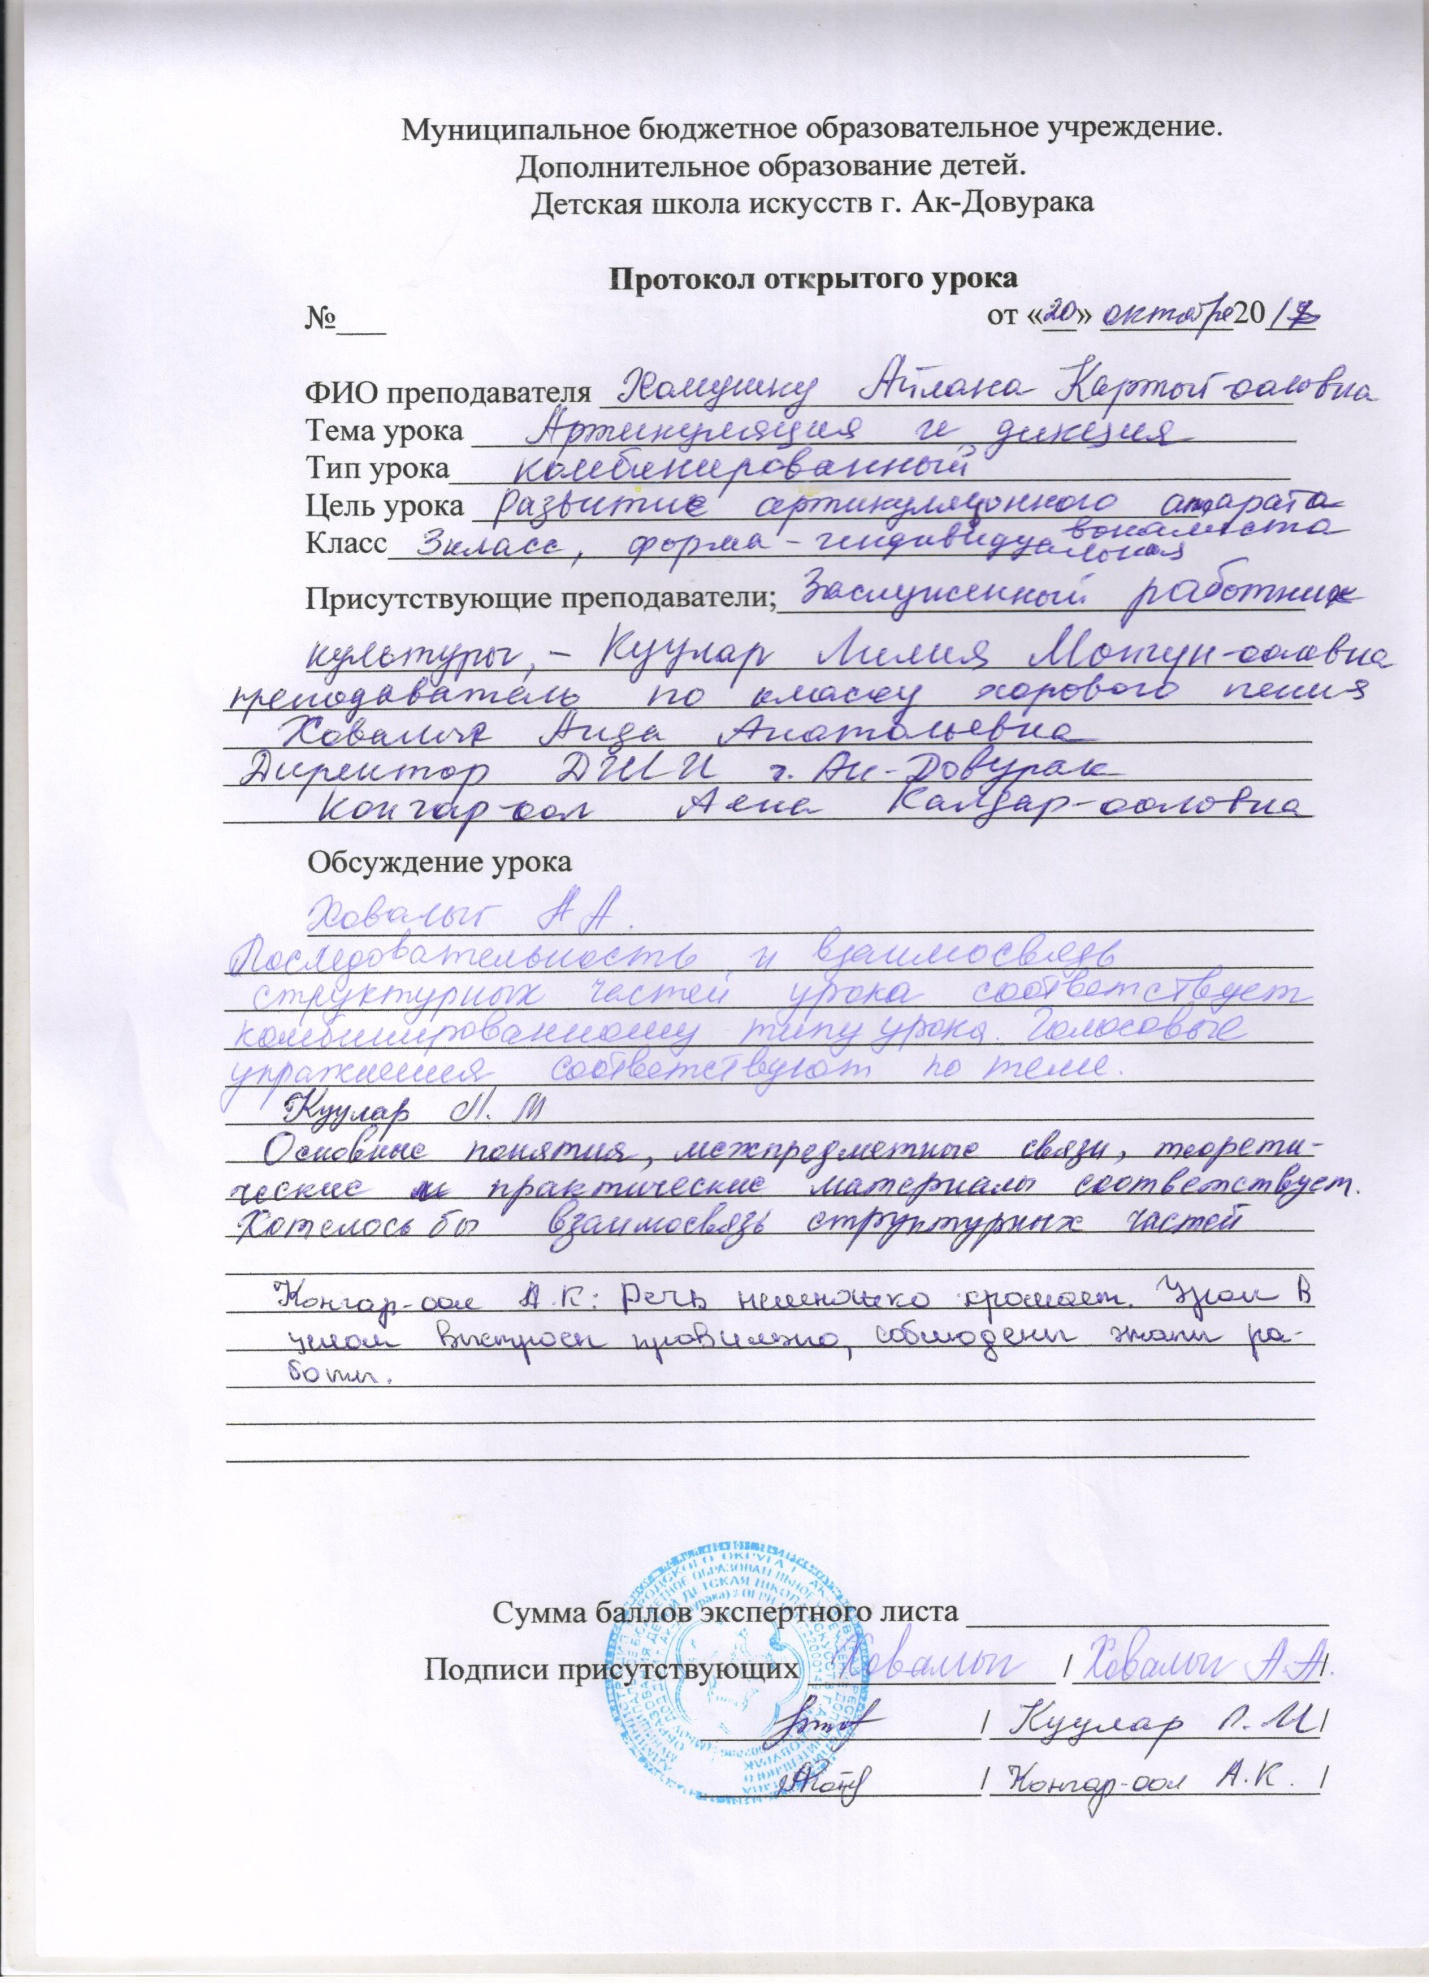 Муниципальное бюджетное образовательное учреждение.
Дополнительное образование детей.
Детская школа искусств г. Ак-Довурака
Протокол открытого урока
№___ от «20» октября 2017
ФИО преподавателя Хомушку Айлана Картый-ооловна
Тема урока Артикуляция и дикция
Тип урока комбинированный
Цель урока Развитие артикуляционного аппарата
вокалиста
Класс 3класс, форма - индивидуальная
Присутствующие преподаватели; Заслуженный работник
культуры, - Куулар Лилия Монгун-ооловна
преподаватель по классу хорового пения
Ховалыг Аида Анатольевна
Директор ДШИ г. Ак-Довурак
Конгар-оол Аяна Калдар-ооловна
Обсуждение урока
Ховалыг А А.
Последовательность и взаимосвязь
структурных частей урока соответствует
комбинированному типу урока. Голосовые
упражнения соответствуют по теме.
Куулар Л. М
Основные понятия, межпредметные связи, теорети-
ческие и практические материалы соответствует.
Хотелось бы взаимосвязь структурных частей
Конгар-оол А.К: Речь немножко хромает. Урок в
целом выстроен правильно, соблюдены этапы ра-
боты.
Сумма баллов экспертного листа
Подписи присутствующих Ховалыг / Ховалыг А.А/.
/ Куулар Л. М/
/ Конгар-оол А.К. /